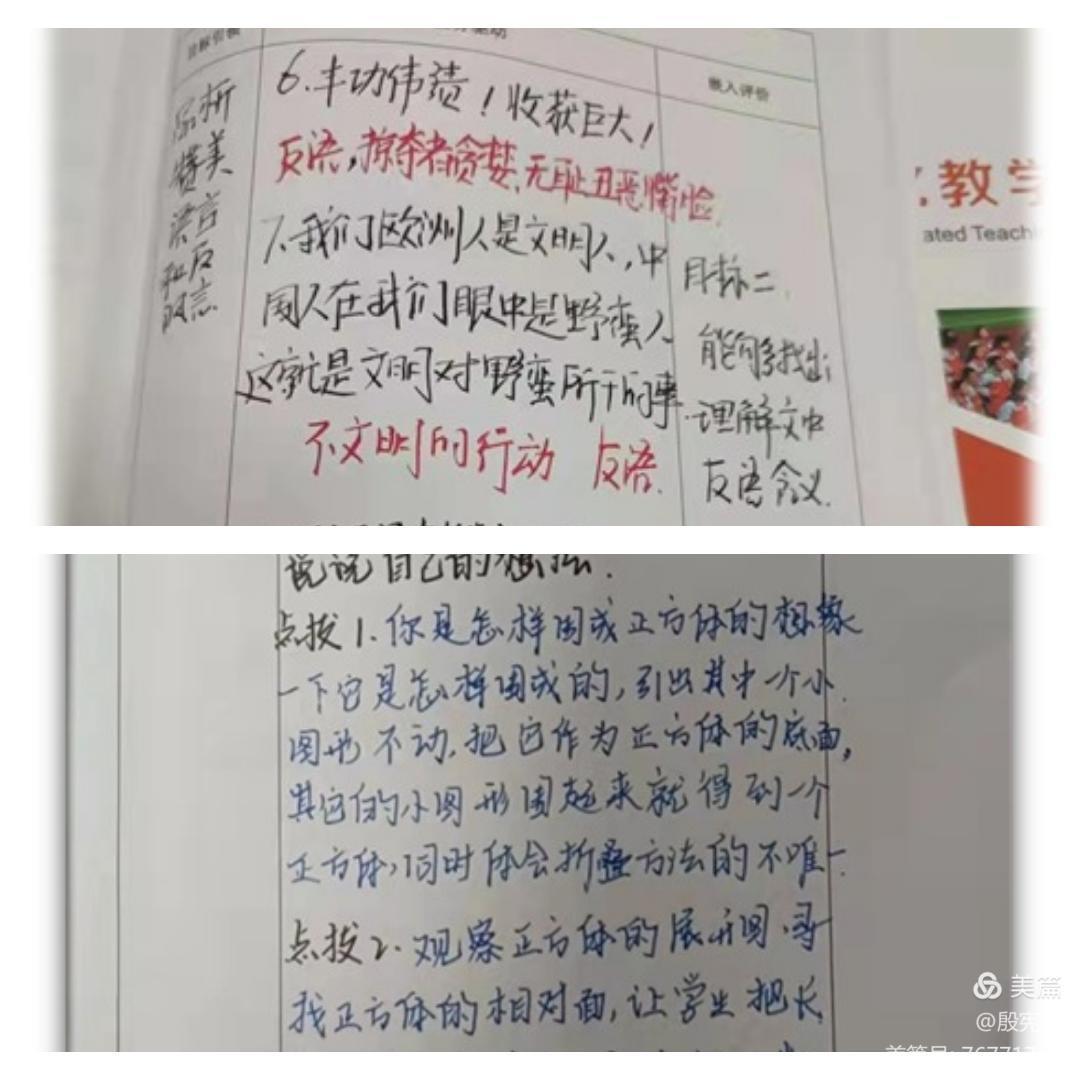 目标引领
嵌入评价
品析
赞美
语言
和反
语言
6.丰功伟绩！收获巨大！
反语，掠夺者贪婪、无耻丑恶嘴脸.
7.我们欧洲人是文明人，中
国人在我们眼中是野蛮人
这就是文明对野蛮所干的事.
不文明的行动 反语.
目标二
能够找出
理解文中
反语含义.
教学
ated Teachi
说说自己的想法.
点拨1.你是怎样围成正方体的想象
一下它是怎样围成的,引出其中一个小
图形不动,把它作为正方体的底面,
其它的小图形围起来就得到一个
正方体,同时体会折叠方法的不唯一.
点拨2.观察正方体的展开图.寻
找正方体的相对面,让学生把长
美篇
@殷宪